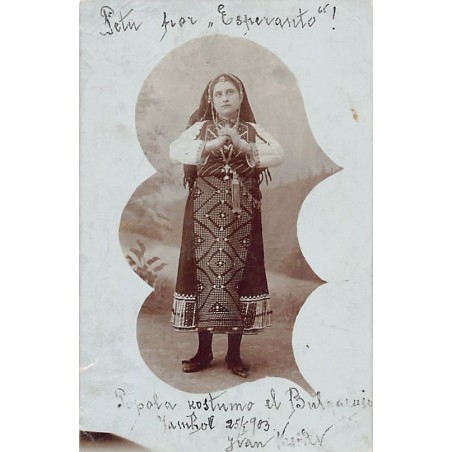 Petu por „Esperanto“!
Popola kostumo el Bulgarujo
Jambol 25/I 903.
Ivan